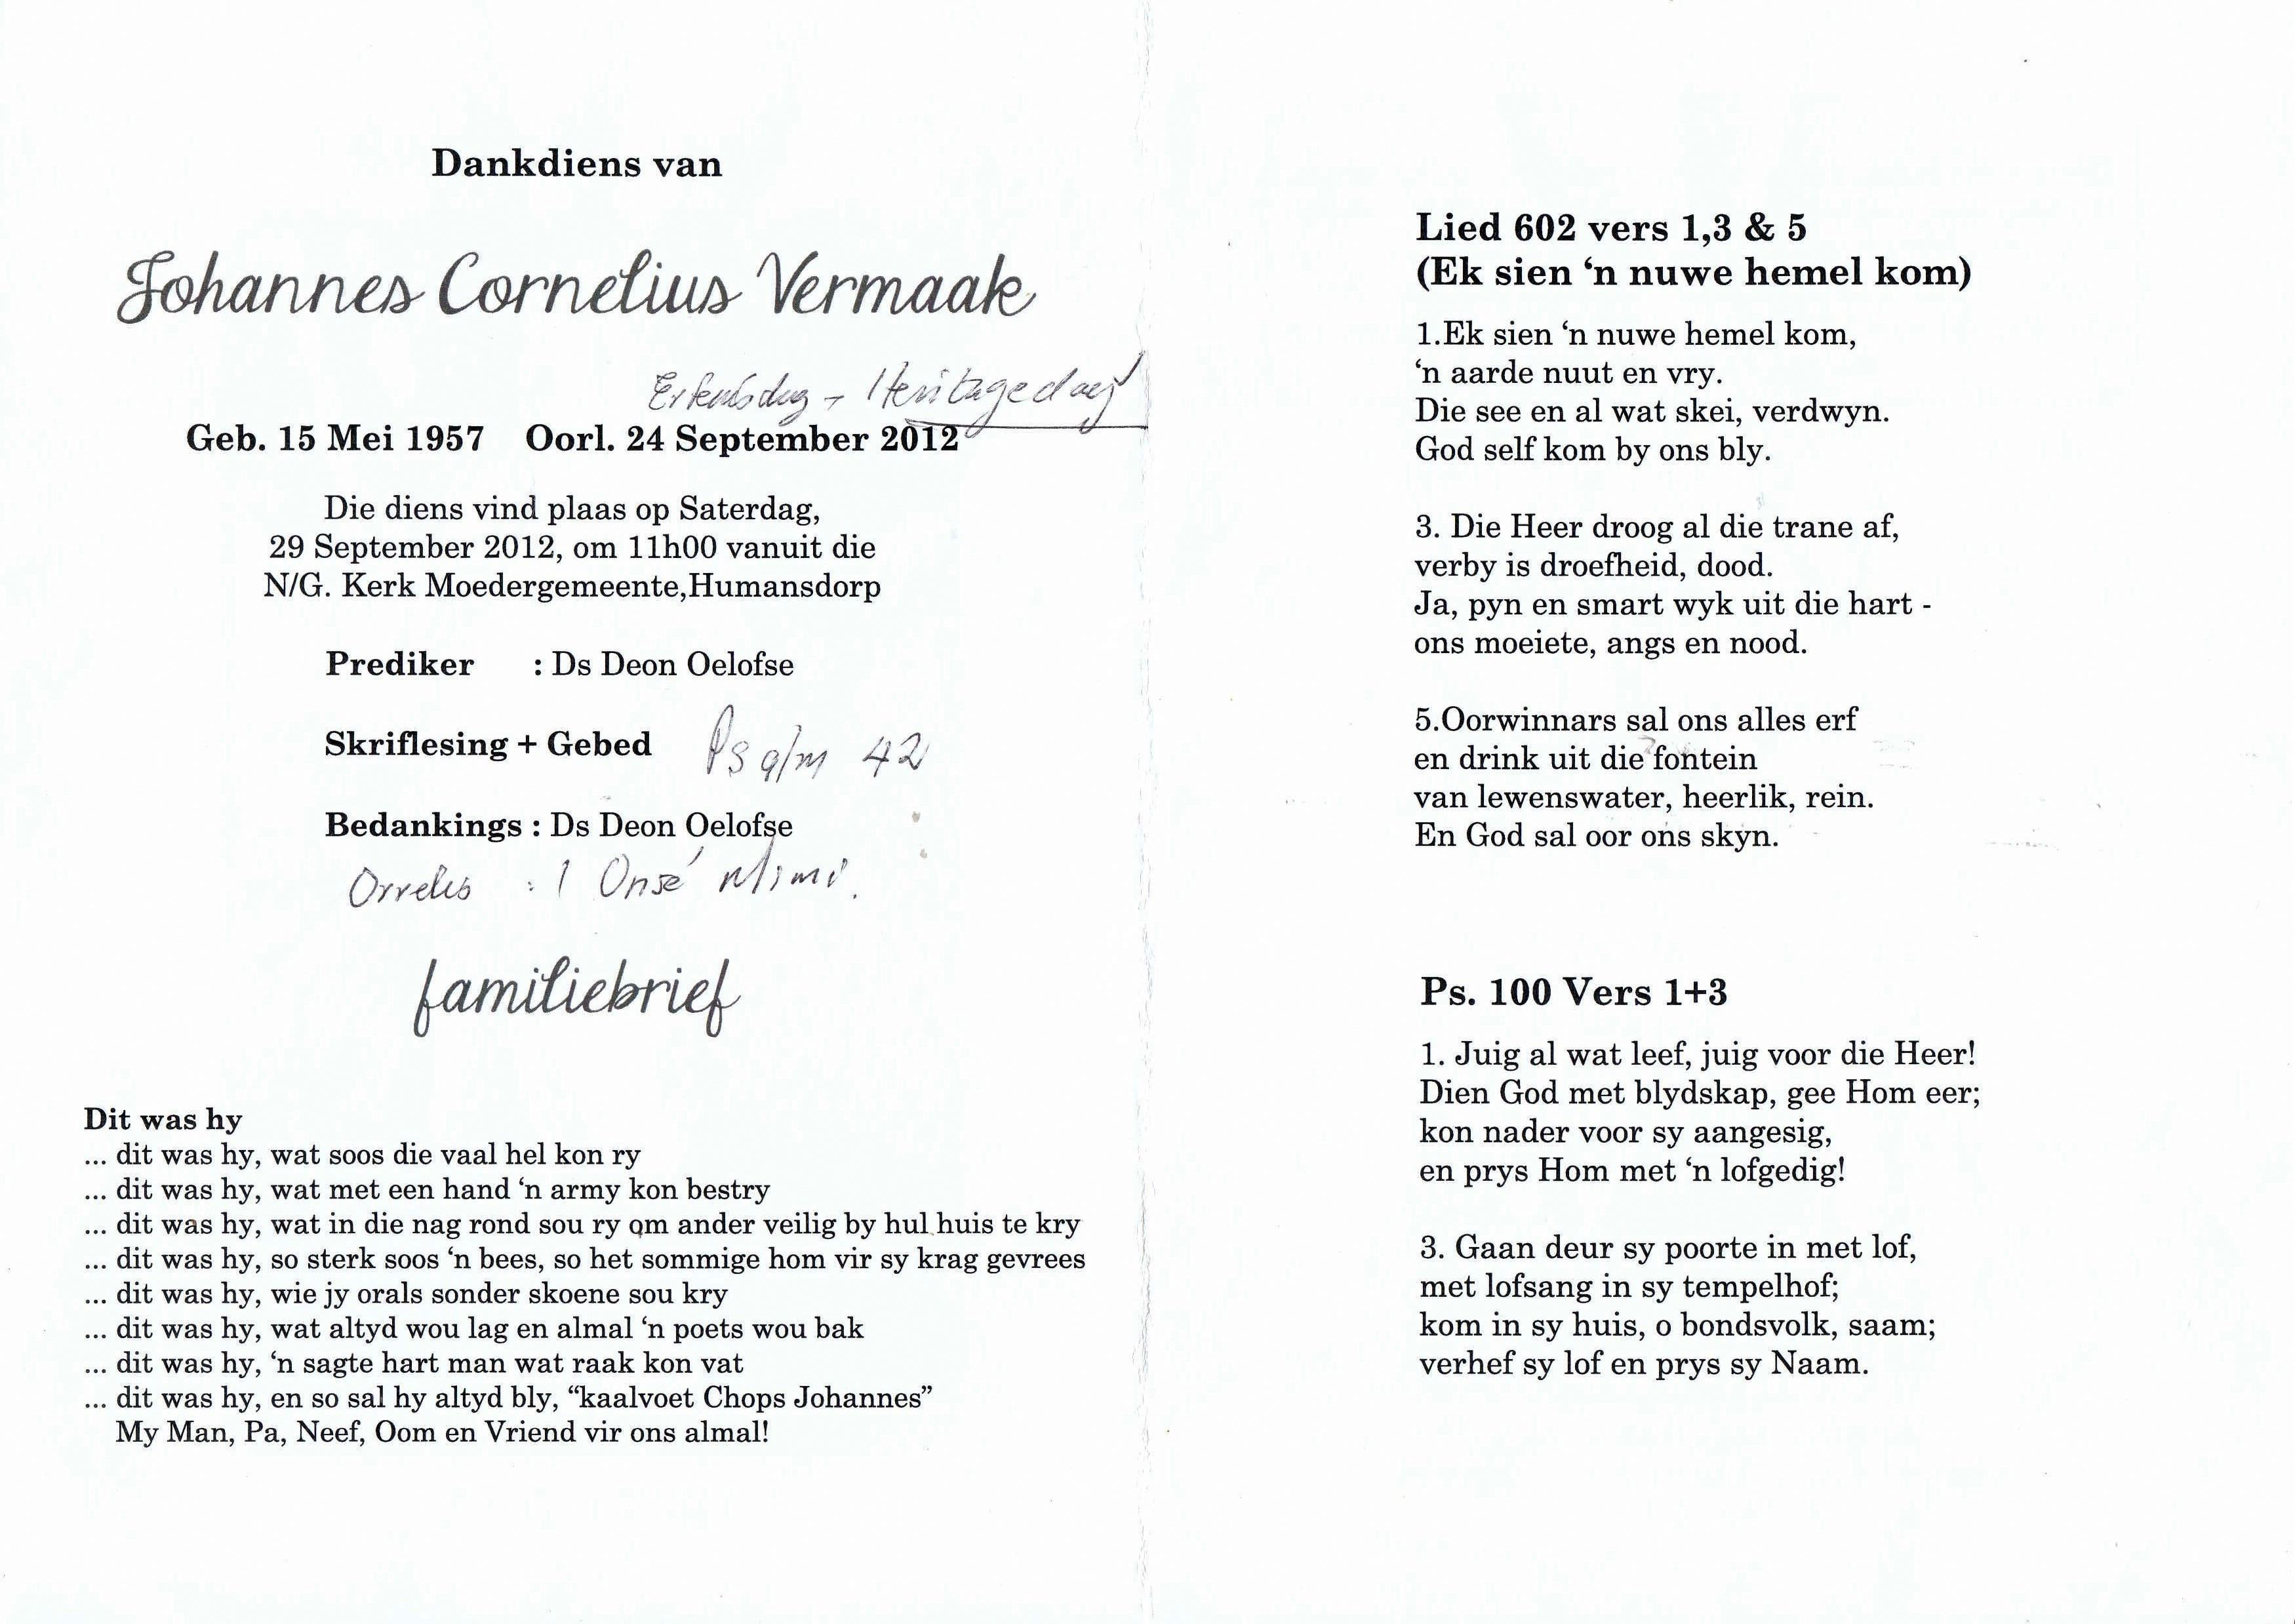 Dankdiens van
Johannes Cornelius Vermaak
Erfenisdag - Heritageday
Geb. 15 Mei 1957 Oorl. 24 September 2012
Die diens vind plaas op Saterdag,
29 September 2012, om 11h00 vanuit die
N/G. Kerk Moedergemeente,Humansdorp
Prediker : Ds Deon Oelofse
Skriflesing + Gebed Psalm 42
Bedankings : Ds Deon Oelofse
Orrelis : Onse Mimi.
familiebrief
Dit was hy
... dit was hy, wat soos die vaal hel kon ry
... dit was hy, wat met een hand ‘n army kon bestry
... dit was hy, wat in die nag rond sou ry om ander veilig by hul huis te kry
... dit was hy, so sterk soos ‘n bees, so het sommige hom vir sy krag gevrees
... dit was hy, wie jy orals sonder skoene sou kry
... dit was hy, wat altyd wou lag en almal ‘n poets wou bak
... dit was hy, ‘n sagte hart man wat raak kon vat
... dit was hy, en so sal hy altyd bly, “kaalvoet Chops Johannes”
My Man, Pa, Neef, Oom en Vriend vir ons almal!
Lied 602 vers 1,3 & 5
(Ek sien ‘n nuwe hemel kom)
1.Ek sien ‘n nuwe hemel kom,
‘n aarde nuut en vry.
Die see en al wat skei, verdwyn.
God self kom by ons bly.
3. Die Heer droog al die trane af,
verby is droefheid, dood.
Ja, pyn en smart wyk uit die hart -
ons moeiete, angs en nood.
5.Oorwinnars sal ons alles erf
en drink uit die fontein
van lewenswater, heerlik, rein.
En God sal oor ons skyn.
Ps. 100 Vers 1+3
1. Juig al wat leef, juig voor die Heer!
Dien God met blydskap, gee Hom eer;
kon nader voor sy aangesig,
en prys Hom met ‘n lofgedig!
3. Gaan deur sy poorte in met lof,
met lofsang in sy tempelhof;
kom in sy huis, o bondsvolk, saam;
verhef sy lof en prys sy Naam.